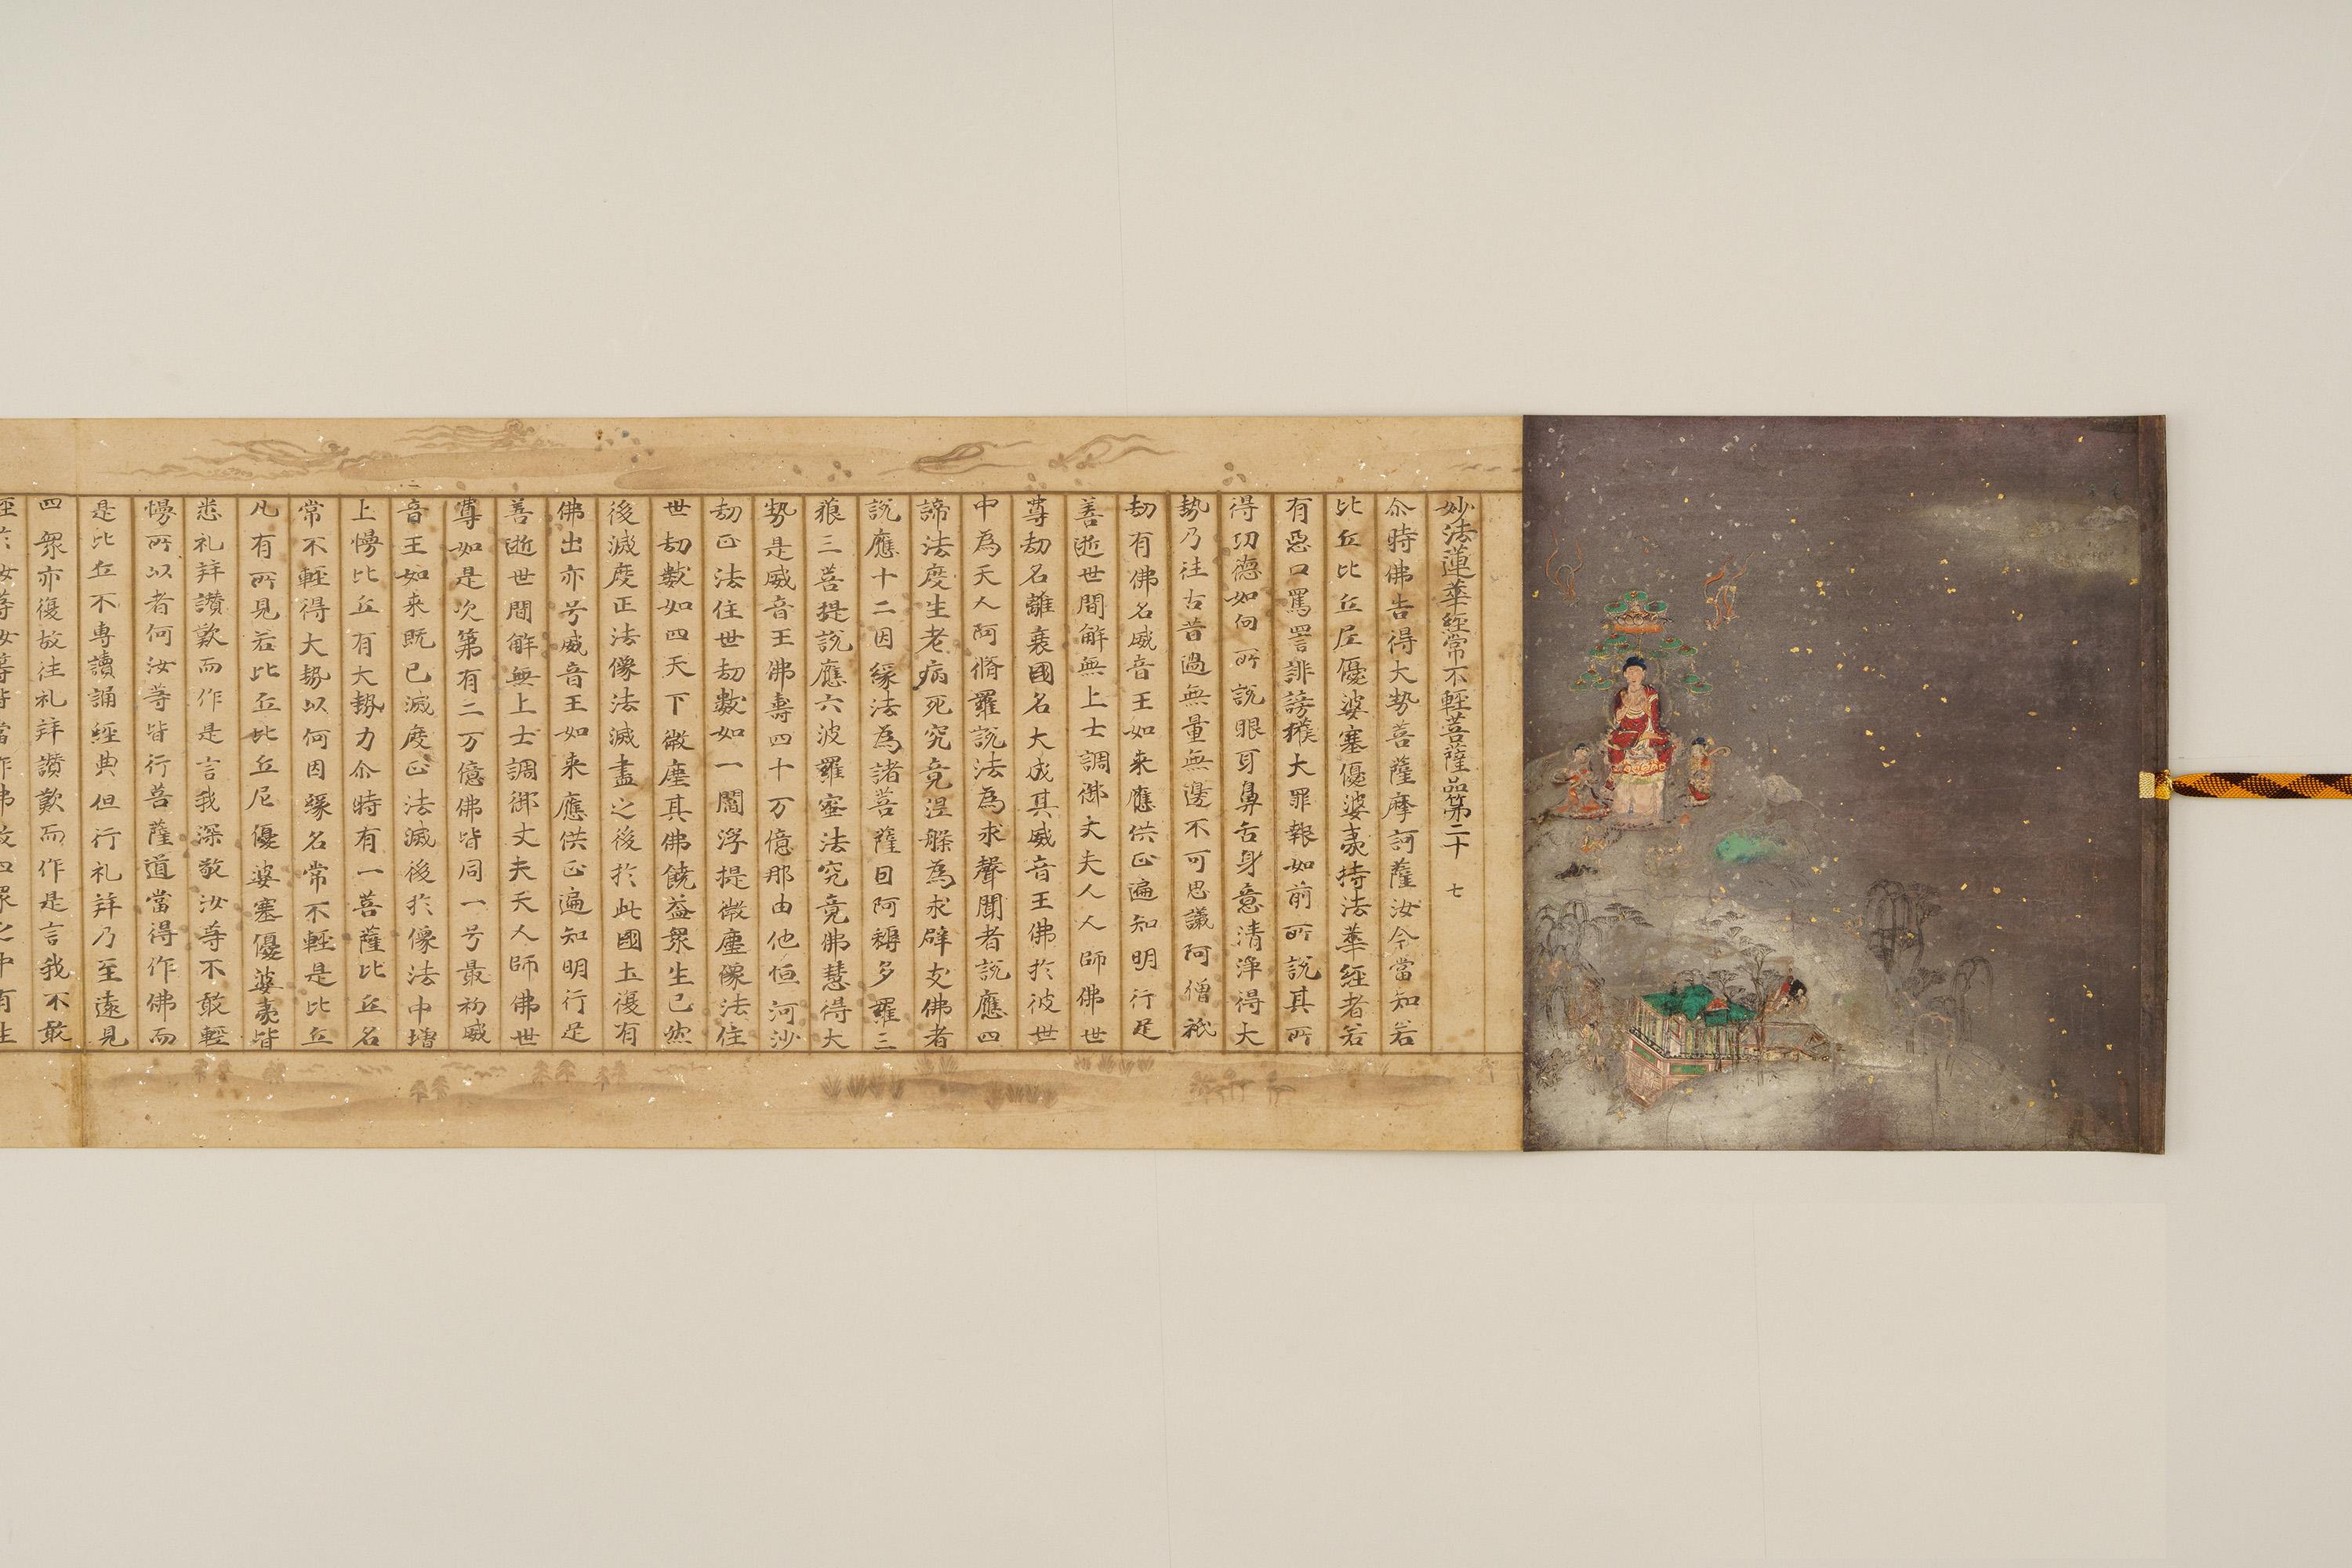 妙法蓮華経常不軽菩薩品第二十 七
尒時佛告得大勢菩薩摩訶薩汝今當知若
比丘比丘尼優婆塞優婆夷持法華經者若
有惡口罵詈誹謗獲大罪報如前所說其所
得功德如向所說眼耳鼻舌身意清淨得大
勢乃往古昔過無量無邊不可思議阿僧祇
劫有佛名威音王如来應供正遍知明行足
善逝世間解無上士調御丈夫天人師佛世
尊劫名離衰國名大成其威音王佛於彼世
中為天人阿脩羅說法為求聲聞者說應四
諦法度生老病死究竟涅槃為求辟支佛者
說應十二因緣法為諸菩薩因阿耨多羅三
藐三菩提說應六波羅蜜法究竟佛慧得大
勢是威音王佛壽四十万億那由他恒河沙
劫正法住世劫數如一閻浮提微塵像法住
世劫數如四天下微塵其佛饒益衆生已然
後滅度正法像法滅盡之後於此國土復有
佛出亦号威音王如来應供正遍知明行足
善逝世間解無上士調御丈夫天人師佛世
尊如是次第有二万億佛皆同一号最初威
音王如来既已滅度正法滅後於像法中增
上慢比丘有大勢力尒時有一菩薩比丘名
常不輕得大勢以何因緣名常不輕是比丘
凡有所見若比丘比丘尼優婆塞優婆夷皆
悉礼拜讚歎而作是言我深敬汝等不敢輕
慢所以者何汝等皆行菩薩道當得作佛而
是比丘不專讀誦經典但行礼拜乃至遠見
四衆亦復故往礼拜讚歎而作是言我不敢